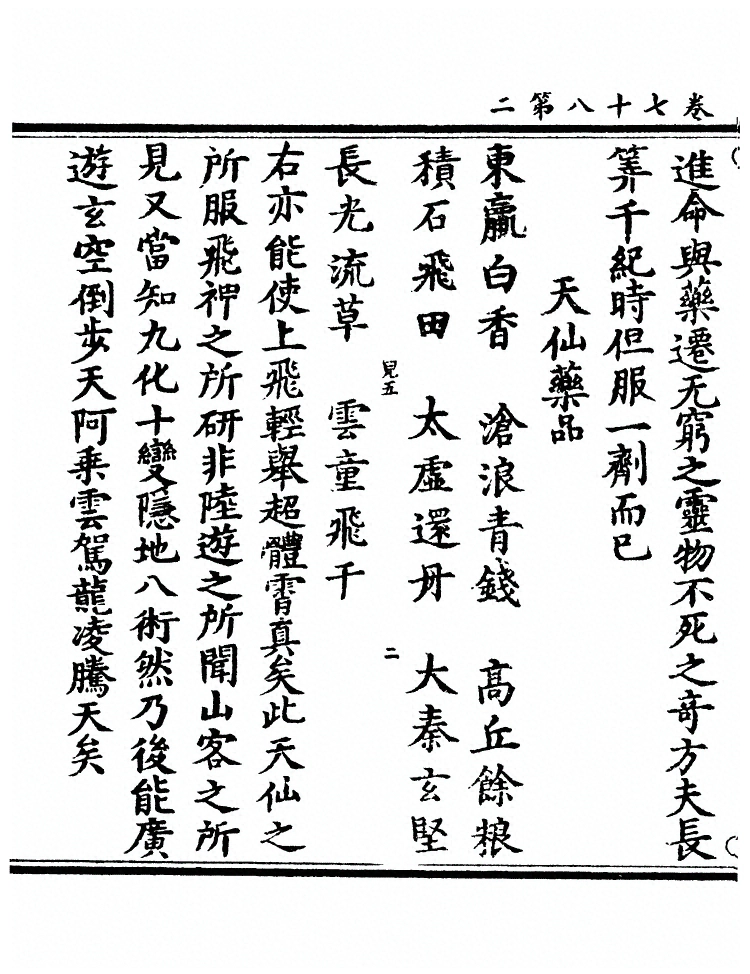 卷七十八第二
進命與藥遷无窮之靈物不死之奇方夫長
筭千紀時但服一劑而已
天仙藥品
東瀛白香 滄浪青錢 高丘餘粮
積石飛田 太虛還丹 大秦玄堅
兒五 二
長光流草 雲童飛千
右亦能使上飛輕舉超體霄真矣此天仙之
所服飛神之所研非陸遊之所聞山客之所
見又當知九化十變隱地八術然乃後能廣
遊玄空倒步天阿乘雲駕龍凌騰天矣